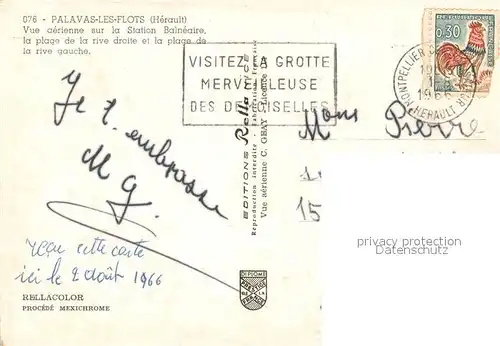 076 - PALAVAS-LES-FLOTS (Hérault)
Vue aérienne sur la Station Balnéaire,
la plage de la rive droite et la plage de
la rive gauche.
VISITEZ LA GROTTE
MERVEILLEUSE
DES DEMOISELLES
MONTPELLIER
1966
HERAULT
0,30
Je t'embrasse
M G.
Mons Pierre
15
EDITIONS Rella NICE
Reproduction interdite - Fabrication Française
Vue aérienne C. GRAY
privacy protection
Datenschutz
Reçu cette carte
ici le 2 août 1966
RELLACOLOR
PROCÉDÉ MEXICHROME
DIPLOME
PRESTIGE
DE LA
FRANCE